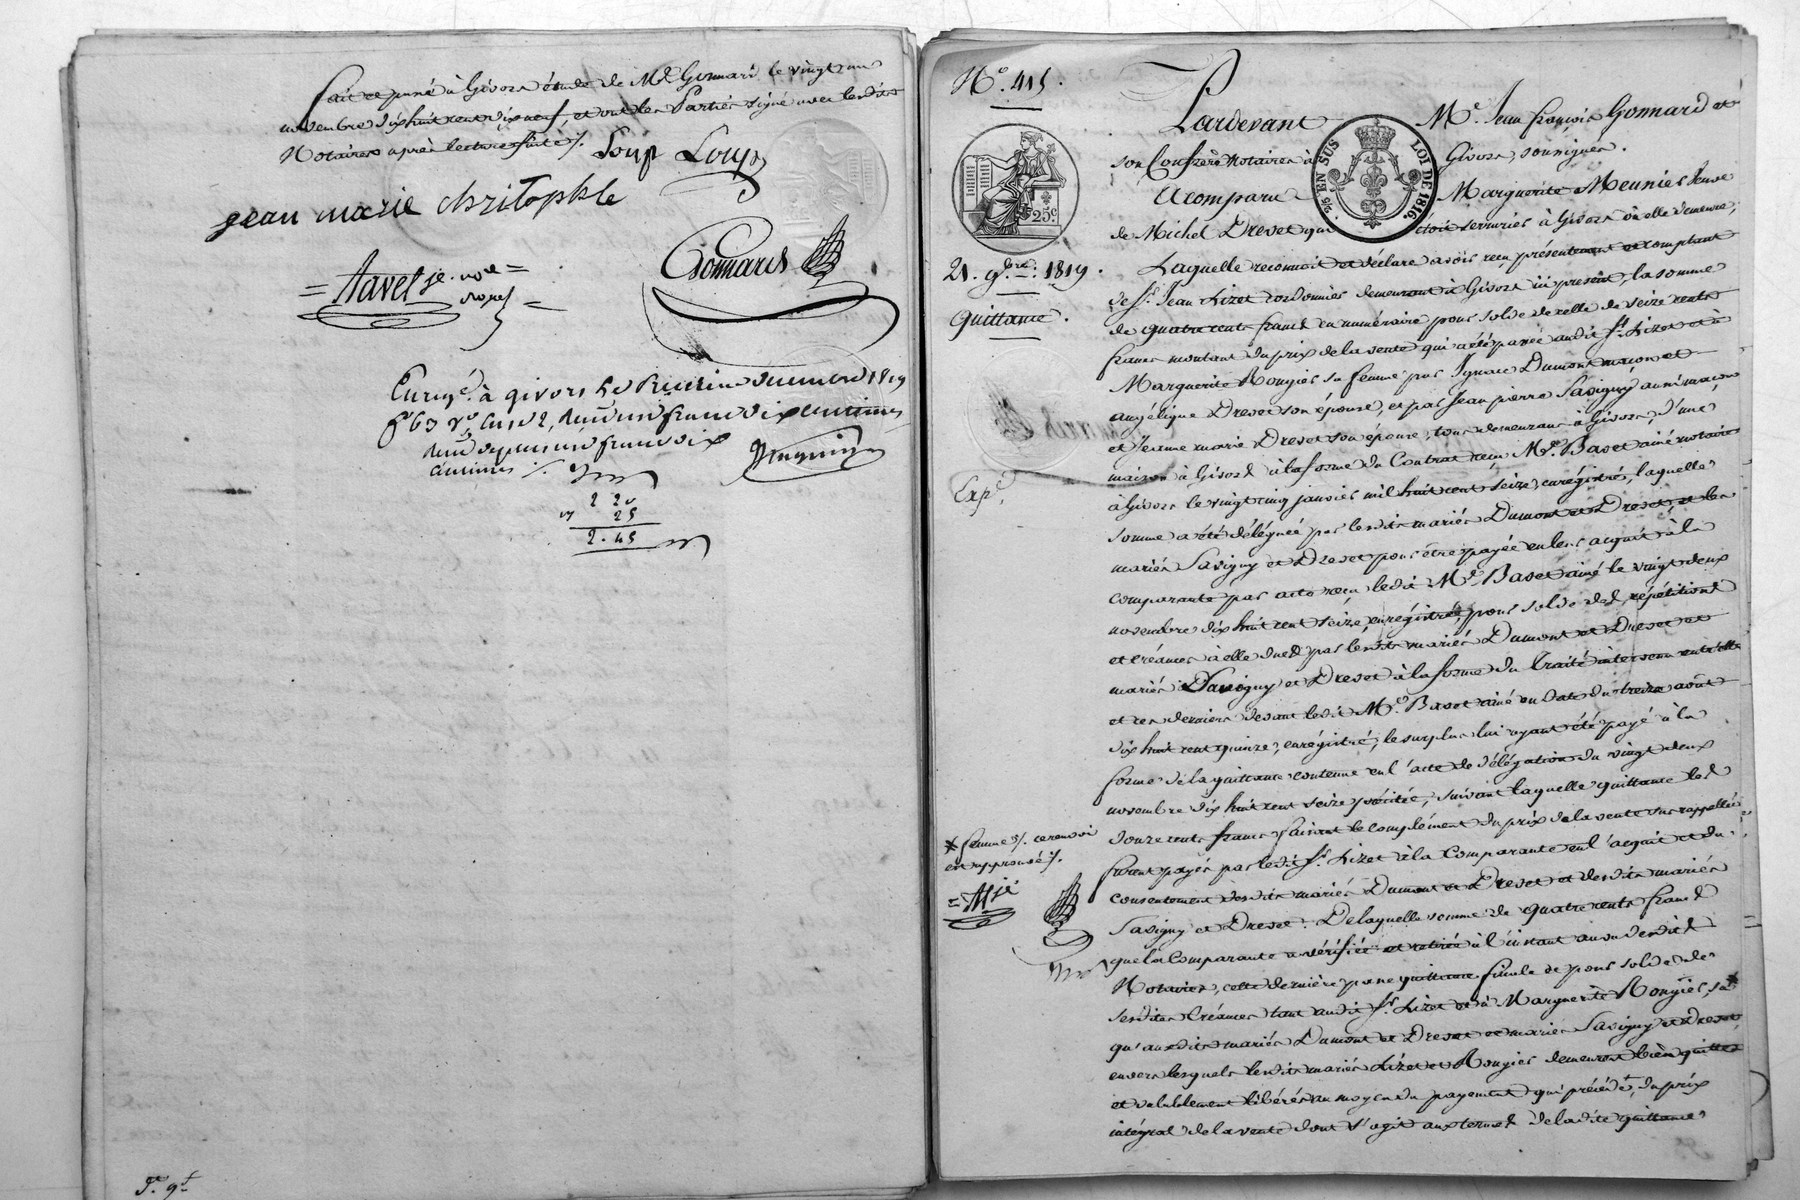 fait et passé à Givors étude de Me. Gonnard le vingt un
novembre dix huit cent dix neuf, et ont les Parties signé avec lesdits
Notaires après lecture faite ./.
Loup Loup
jean marie christophle
= Favel je. nre =
Gonnard
Enregé. à givors le décembre 1819
fo 63 Ro. Case 2, Reçu un franc dix centimes
centimes ./.
2 20
25
2.45
Fo. 9t.
No. 415.
Pardevant Me. Jean françois Gonnard et
son Confrère notaires à Givors, soussignés.
A comparu Marguerite Meunier veuve
de Michel Drevet qui étoit serrurier à Givors où elle demeure,
25 EN SUS LOI DE 1816.
25c.
21. 9bre. 1819.
Quittance.
Laquelle reconnoit et déclare avoir reçu présentement et comptant
de Sr. Jean Lizet cordonnier demeurant à Givors ici présent, la somme
de quatre cents francs en numéraire pour solde de celle de seize cents
francs montant du prix de la vente qui a été passée audit Sr. Lizet et à
Marguerite Rongier sa femme par Ignace Dumont maçon et
angélique Drevet son épouse, et par Jean pierre Savigny aussi maçon
et Jeanne marie Drevet son épouse, tous demeurans à Givors, d'une
maison à Givors à la forme du Contrat reçu Me. Baset ainé notaire
Expé.
à Givors le vingt cinq janvier mil huit cent seize, enregistré, laquelle
somme a été déléguée par lesdits mariés Dumont et Drevet, et les
mariés Savigny et Drevet pour être payée en leur acquit à la
comparante par acte reçu ledit Me. Baset ainé le vingt deux
novembre dix huit cent seize, enregistré, pour solde des répétitions
et créances à elle dues par lesdits mariés Dumont et Drevet et
mariés Savigny et Drevet à la forme du Traité intervenu entr'elle
et ces derniers devant ledit Me. Baset ainé en date du treize août
dix huit cent quinze, enregistré, le surplus lui ayant été payé à la
forme de la quittance contenue en l'acte de délégation du vingt deux
novembre dix huit cent seize précité, suivant laquelle quittance les
douze cents francs faisant le complément du prix de la vente sus rappellée
furent payés par ledit Sr. Lizet à la Comparante en l'acquit et du
consentement desdits mariés Dumont et Drevet et desdits mariés
Savigny et Drevet. De laquelle somme de quatre cents francs
que la Comparante a vérifiée et retirée à l'instant au vu desdits
Notaires, cette dernière passe quittance finale et pour solde de
sesdites créances tant audit Sr. Lizet et à Marguerite Rongier, sa *
* femme ./. ce renvoi
est approuvé ./.
qu'auxdits mariés Dumont et Drevet et mariés Savigny et Drevet,
envers lesquels lesdits mariés Lizet et Rongier demeurent bien quittes
et valablement libérés au moyen du payement qui précède, du prix
intégral de la vente dont s'agit aux termes de ladite quittance